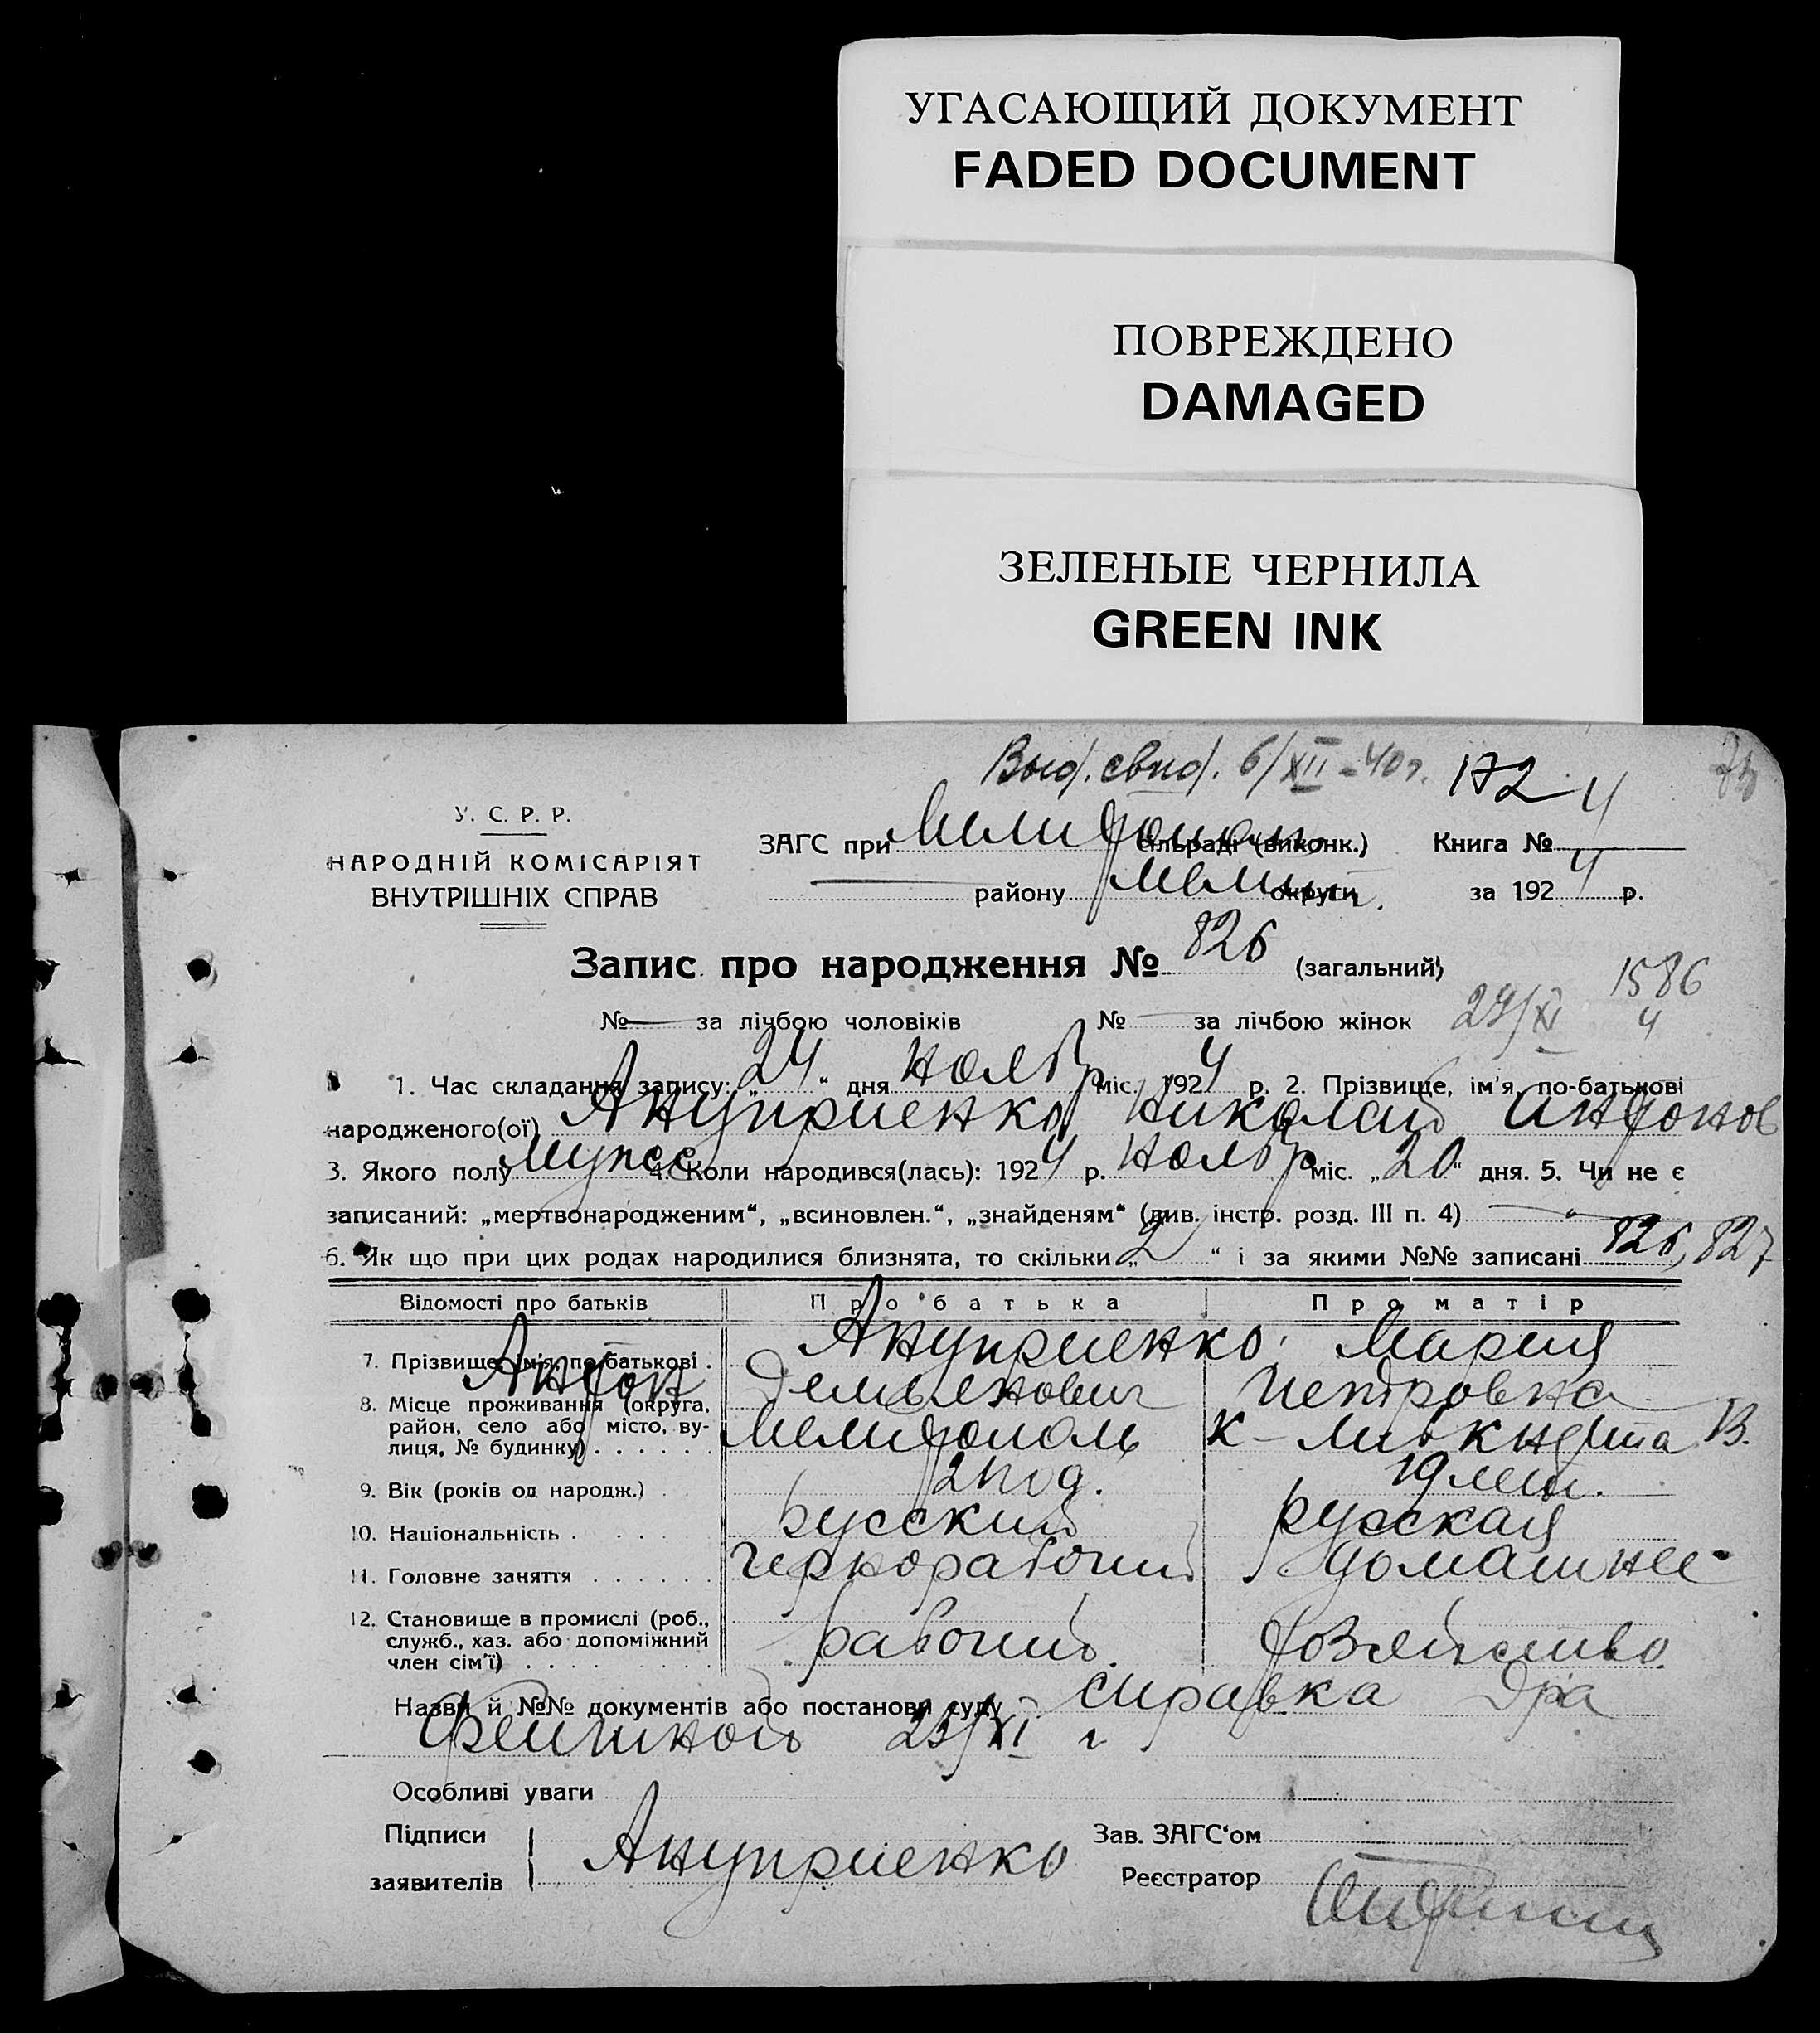 УГАСАЮЩИЙ ДОКУМЕНТ
FADED DOCUMENT
ПОВРЕЖДЕНО
DAMAGED
ЗЕЛЕНЫЕ ЧЕРНИЛА
GREEN INK
Выд. свид. 6/XII-40г. 172
У. С. Р. Р.
НАРОДНІЙ КОМІСАРІЯТ
ВНУТРІШНІХ СПРАВ
ЗАГС при Мелитопол. сільраді (виконк.) Книга № 4
району Мелит. округи за 1924 р.
Запис про народження № 826 (загальний)
1586
№ — за лічбою чоловіків № — за лічбою жінок 24/XI 4
1. Час складання запису: „24“ дня Ноябр міс. 1924 р. 2. Прізвище, ім'я, по-батькові
народженого(ої) Ануприенко Николай Антонов
3. Якого полу мужс 4. Коли народився(лась): 1924 р. Ноябр міс. „20“ дня. 5. Чи не є
записаний: „мертвонародженим“, „всиновлен.“, „знайденям“ (див. інстр. розд. III п. 4) —
6. Як що при цих родах народилися близнята, то скільки „2“ і за якими №№ записані 826, 827
Відомості про батьків Про батька Про матір
7. Прізвище, ім'я, по батькові . Антон Ануприенко Демьянович Мария Петровна
8. Місце проживання (округа,
район, село або місто, ву-
лиця, № будинку) . . . . . . Мелитополь К-Либкнехта 13.
9. Вік (років од народж.) . 21 год. 19 лет.
10. Національність . . . . русский русская
11. Головне заняття . . . . . . чернорабочий домашнее
12. Становище в промислі (роб.,
служб., хаз. або допоміжний
член сім'ї) . . . . . . . рабочий. хозяйство
Назви й №№ документів або постанови суду справка Д-ра
23/XI г.
Особливі уваги
Підписи
заявителів Ануприенко
Зав. ЗАГС'ом
Реєстратор